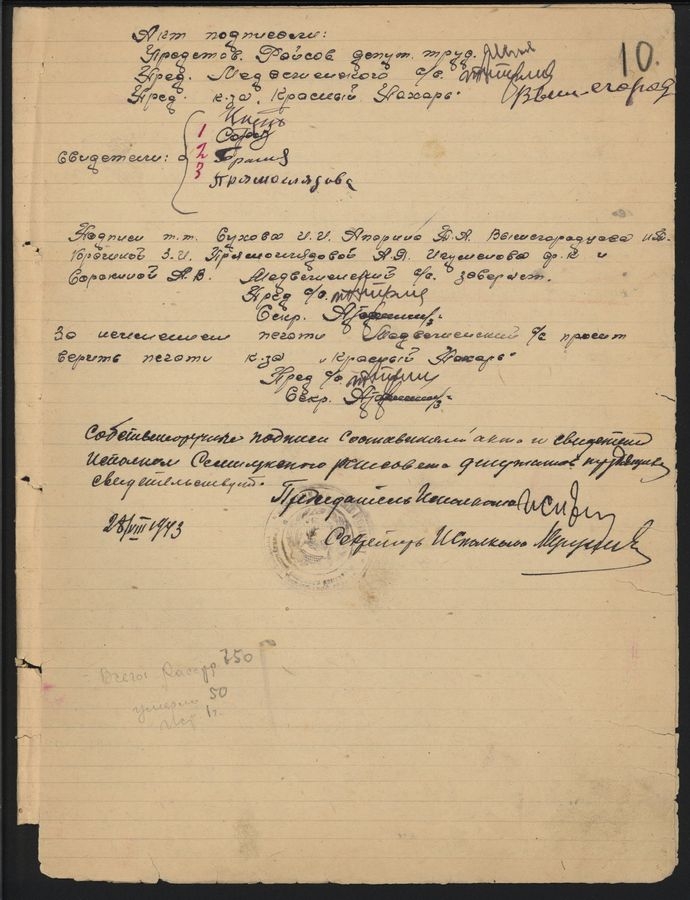 10.
Акт подписали:
Представ. Райсов. депут. труд.
Пред. Медвеженского с/с.
Пред. к-за „Красный Пахарь"
Вышегород
Свидетели:
1
2
3
Прямоглядова
Подписи т.т. Сухова И.И. Апарина П.А. Вышегородцева
З.И. Прямоглядовой А.Д. Игуменова Ф.К и
Сорокиной А.В. Медвеженский с/с. заверяет.
Пред с/с.
Секр.
За неимением печати Медвеженский с/с просит
верить печати к-за „Красный Пахарь"
Пред с/с.
Секр.
Собственноручные подписи составителей акта и свидетелей
Исполком Семилукского райсовета депутатов трудящихся
свидетельствует.
Председатель Исполкома
28/VIII 1943
Секретарь Исполкома
Всего: Расстр 750
умерли 50
1 г.